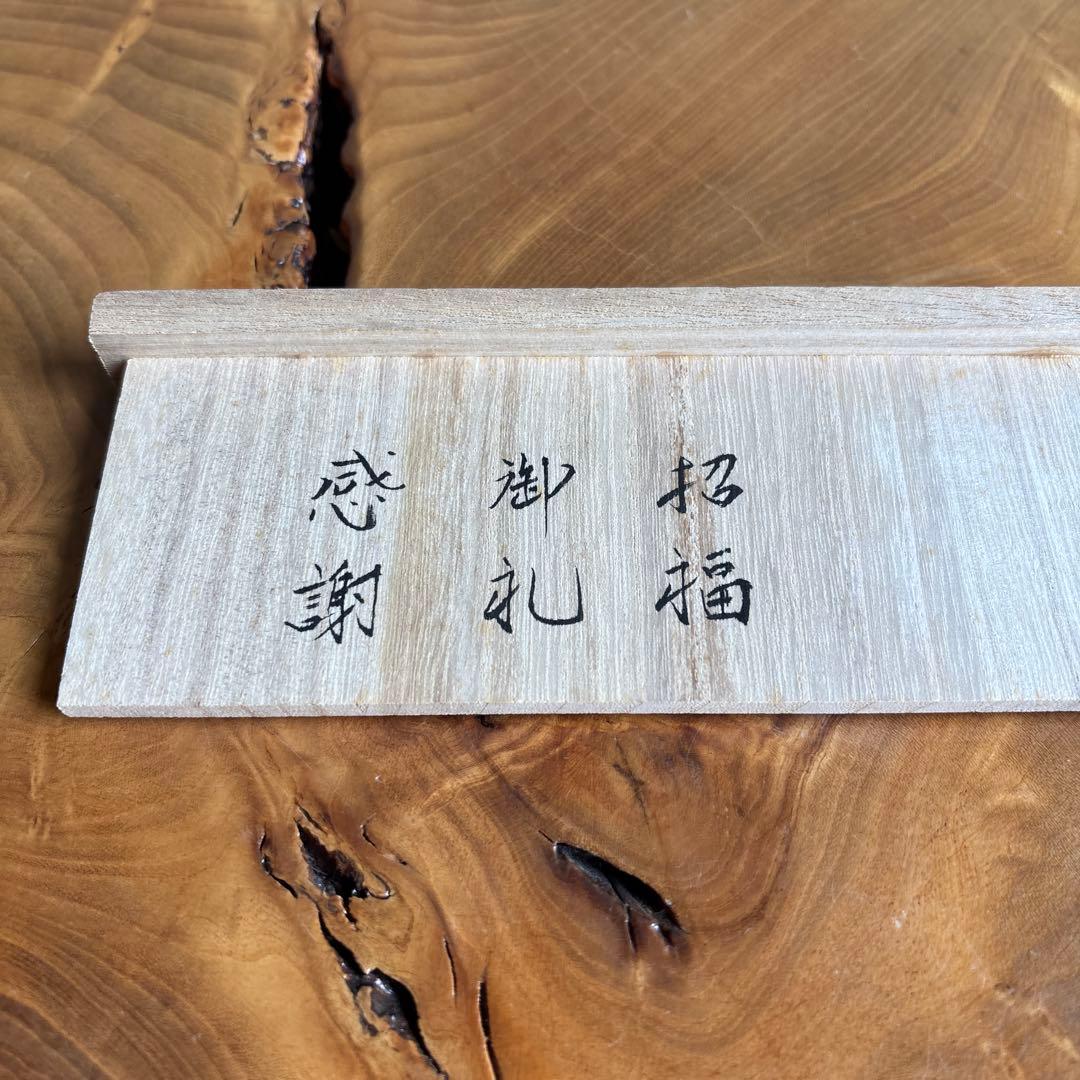 招福
御礼
感謝